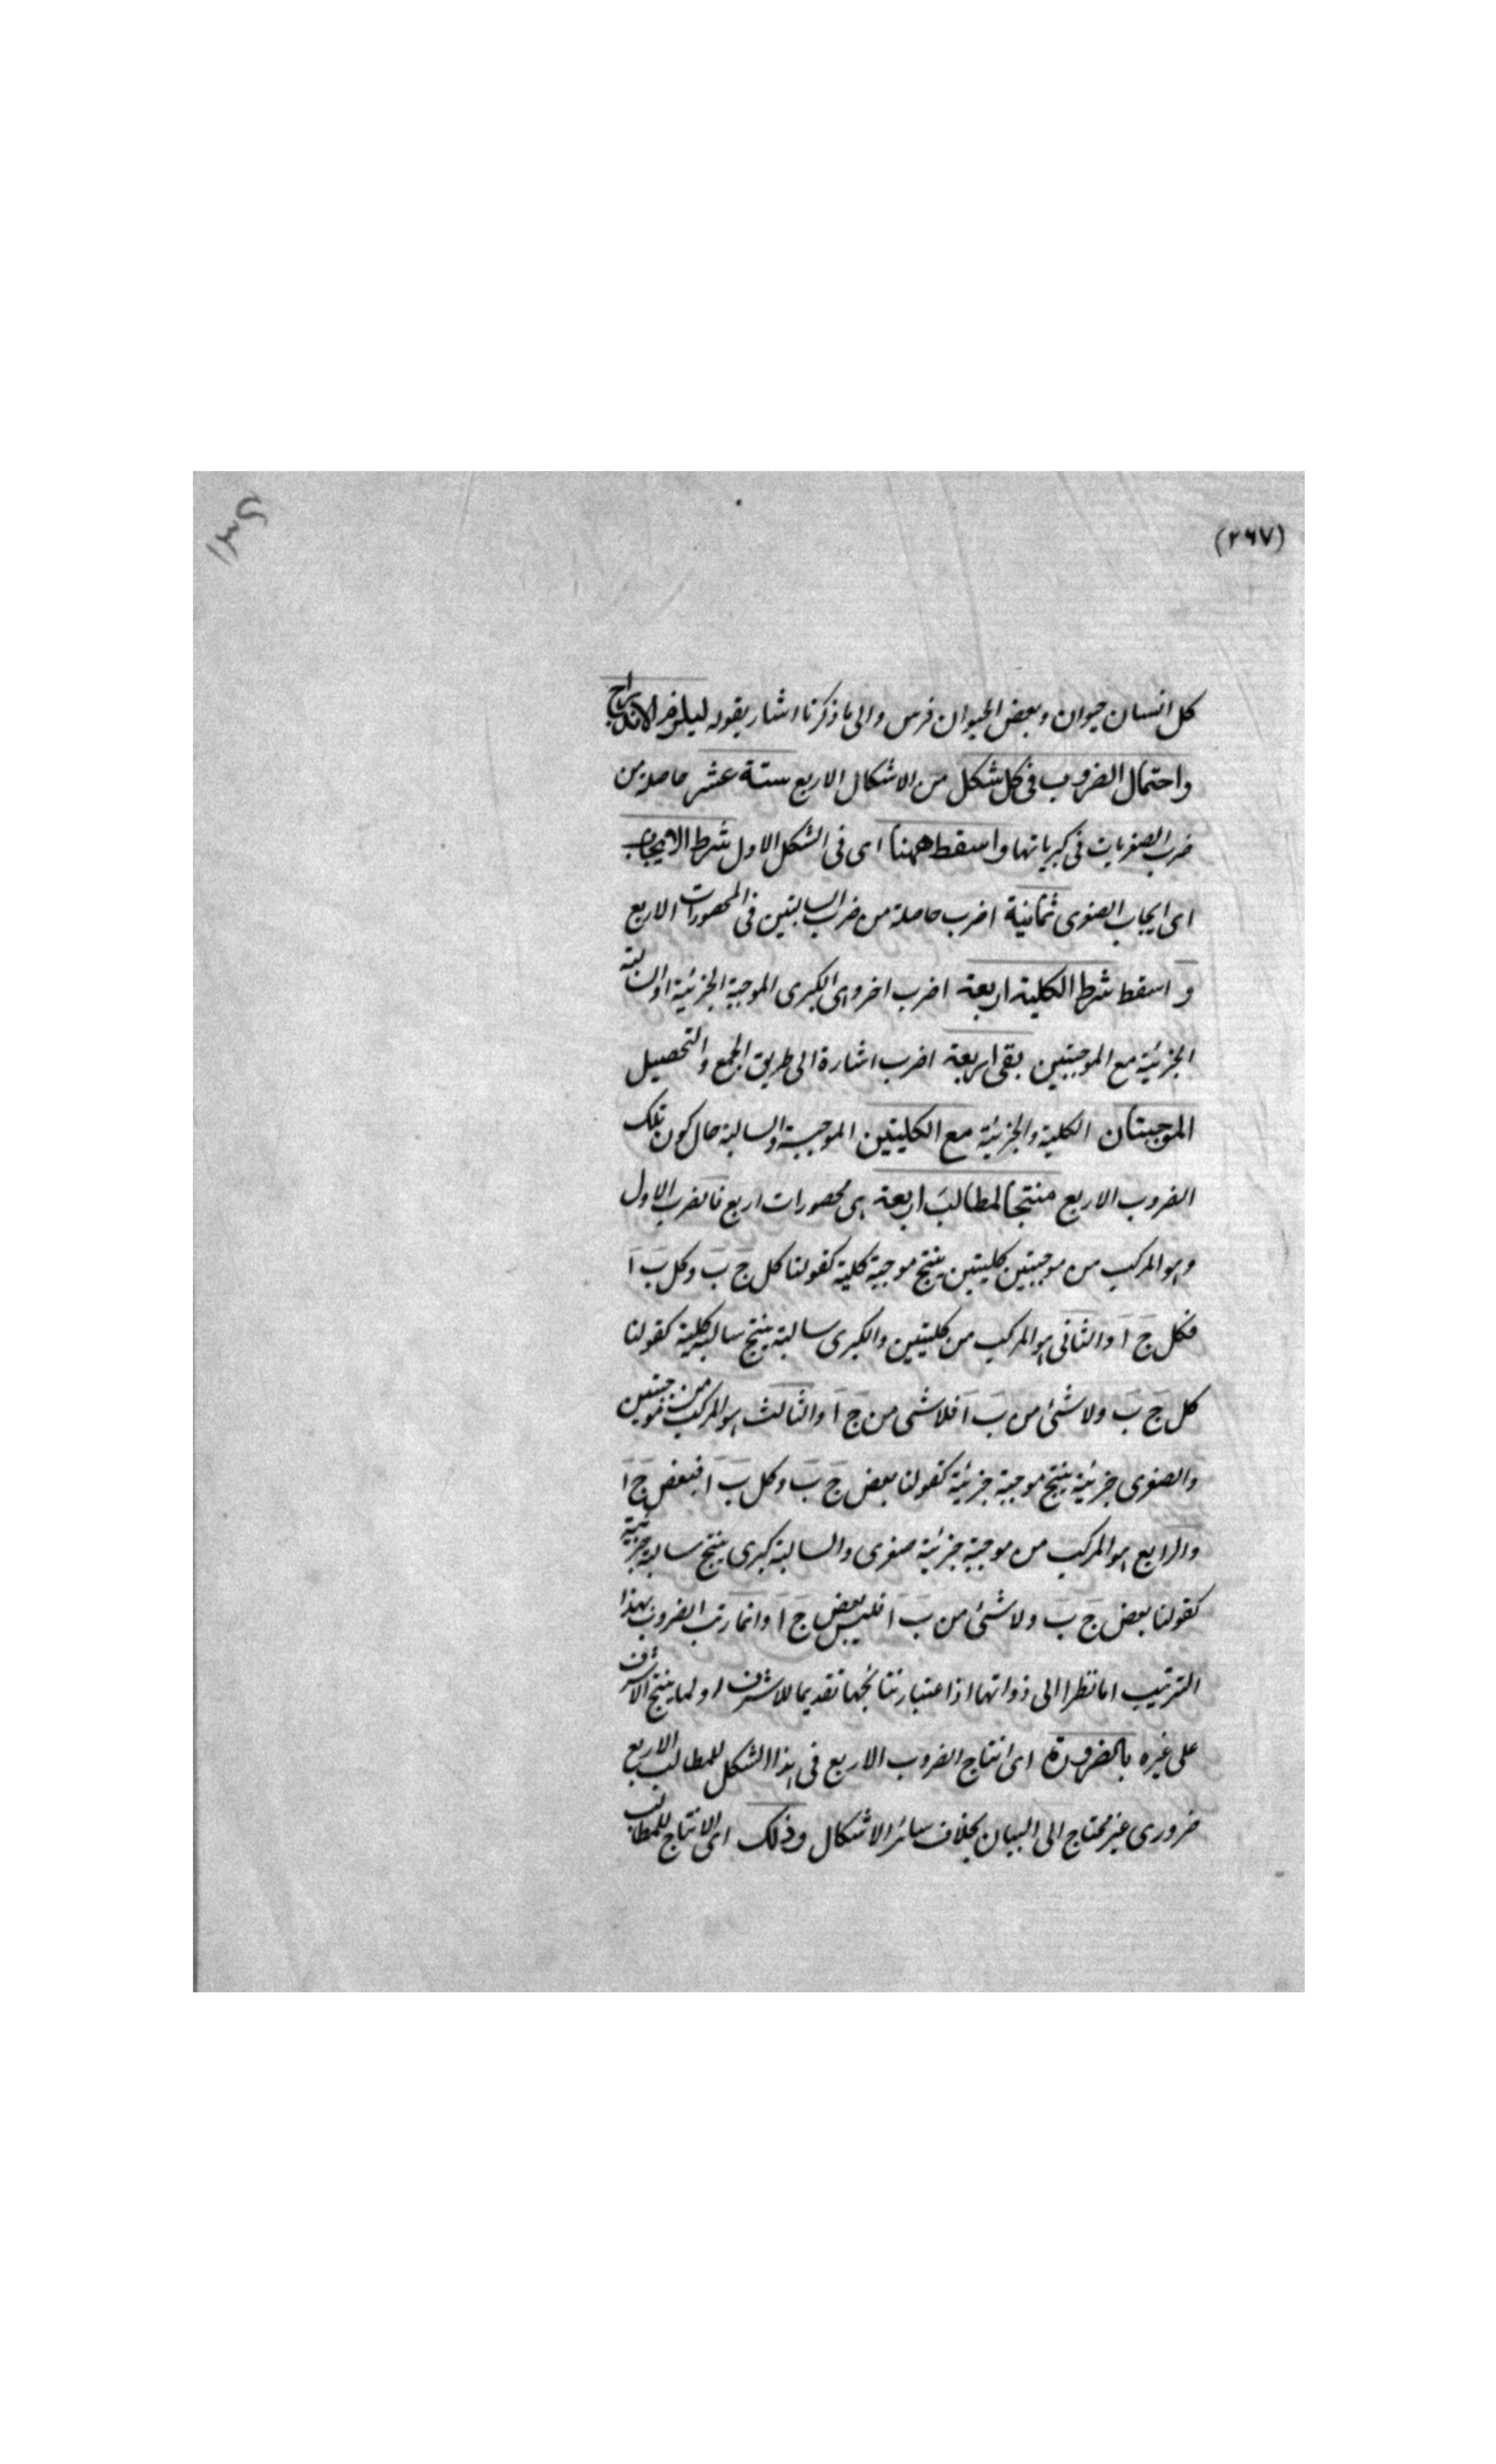 (٢٦٧)
كل انسان حيوان وبعض الحيوان فرس والى ما ذكرنا اشار بقوله ليلزم الاندراج
واحتمال الضروب فى كل شكل من الاشكال الاربع ستة عشر حاصلة من
ضرب الصغريات فى كبرياتها واسقط ههنا اى فى الشكل الاول شرط الايجاب
اى ايجاب الصغرى ثمانية اضرب حاصلة من ضرب السالبتين فى المحصورات الاربع
و اسقط شرط الكلية اربعة اضرب اخر وهى الكبرى الموجبة الجزئية او السالبة
الجزئية مع الموجبتين بقى اربعة اضرب اشارة الى طريق الجمع والتحصيل
الموجبتان الكلية والجزئية مع الكليتين الموجبة والسالبة حال كون تلك
الضروب الاربع منتجا لمطالب اربعة هى محصورات اربع فالضرب الاول
وهو المركب من موجبتين كليتين ينتج موجبة كلية كقولنا كل ج ب وكل ب ا
فكل ج ا والثانى هو المركب من كليتين والكبرى سالبة ينتج سالبة كلية كقولنا
كل ج ب ولا شئ من ب ا فلا شى من ج ا والثالث هو المركب من موجبتين
والصغرى جزئية ينتج موجبة جزئية كقولنا بعض ج ب وكل ب ا فبعض ج ا
والرابع هو المركب من موجبة جزئية صغرى والسالبة كبرى ينتج سالبة جزئية
كقولنا بعض ج ب ولا شئ من ب ا فليس بعض ج ا وانما رتب الضروب بهذا
الترتيب اما نظرا الى ذواتها اذا عتبار نتائجها تقديما للاشرف او لما ينتج الاشرف
على غيره بالضرورة اى انتاج الضروب الاربع فى هذا الشكل للمطالب الاربع
ضرورى غير محتاج الى البيان بخلاف سائر الاشكال وذلك اى الانتاج للمطالب